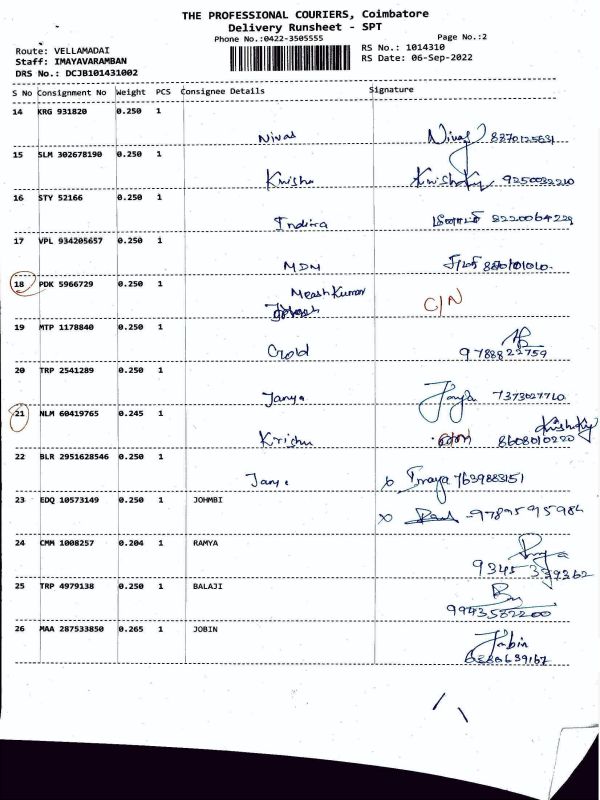 THE PROFESSIONAL COURIERS, Coimbatore
Delivery Runsheet - SPT
Phone No.:0422-3505555
Page No.:2
Route: VELLAMADAI
RS No.: 1014310
Staff: IMAYAVARAMBAN
RS Date: 06-Sep-2022
DRS No.: DCJB101431002
S No Consignment No Weight PCS Consignee Details Signature
14 KRG 931820 0.250 1
Nivas Nivas
15 SLM 302678190 0.250 1
Krishu 9250032210
16 STY 52166 0.250 1
Indira 8220064229
17 VPL 934205657 0.250 1
MDM
18 PDK 5966729 0.250 1
Kumar C/N
19 MTP 1178840 0.250 1
Gold 9788822759
20 TRP 2541289 0.250 1
Janya 7373027710
21 NLM 60419765 0.245 1
Krishu 8608010220
22 BLR 2951628546 0.250 1
Imaya 7639883151
23 EDQ 10573149 0.250 1 JOHMBI
9789595984
24 CMM 1008257 0.204 1 RAMYA
9345 339362
25 TRP 4979138 0.250 1 BALAJI
9943582200
26 MAA 287533850 0.265 1 JOBIN
Jobin